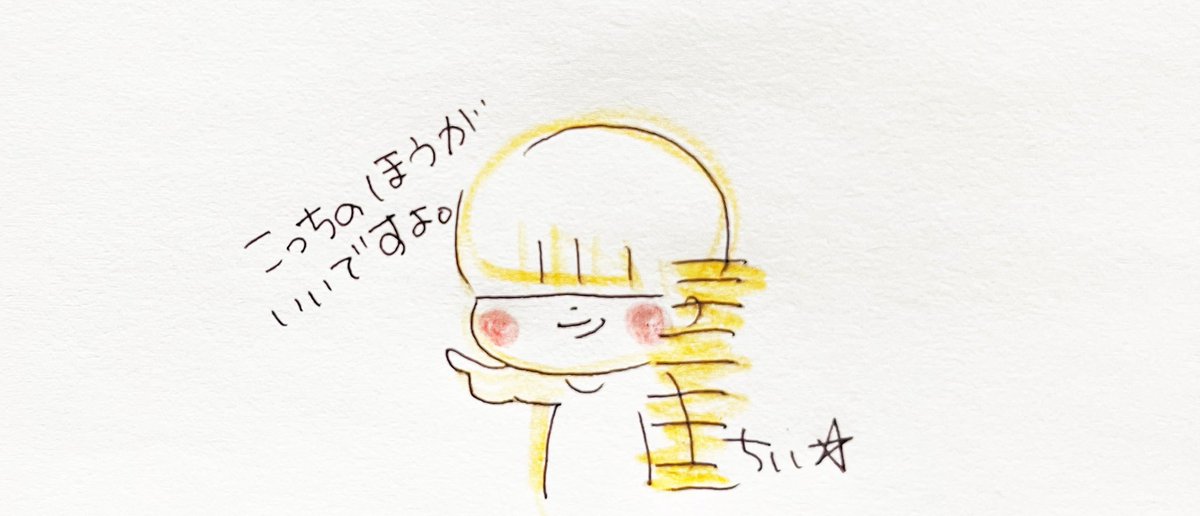 こっちのほうが
いいですよ。
ちい☆